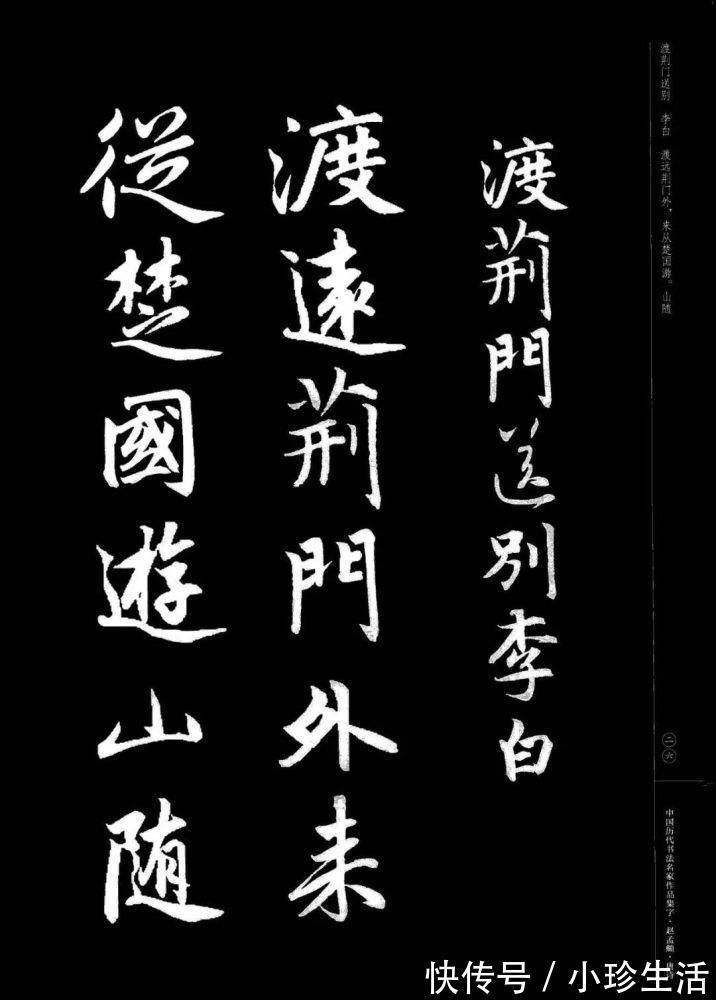 渡荆門送別李白
渡遠荆門外来
従楚國遊山随
渡荆门送别 李白 渡远荆门外，来从楚国游。山随
二六
中国历代书法名家作品集字·赵孟頫·
快传号 / 小珍生活